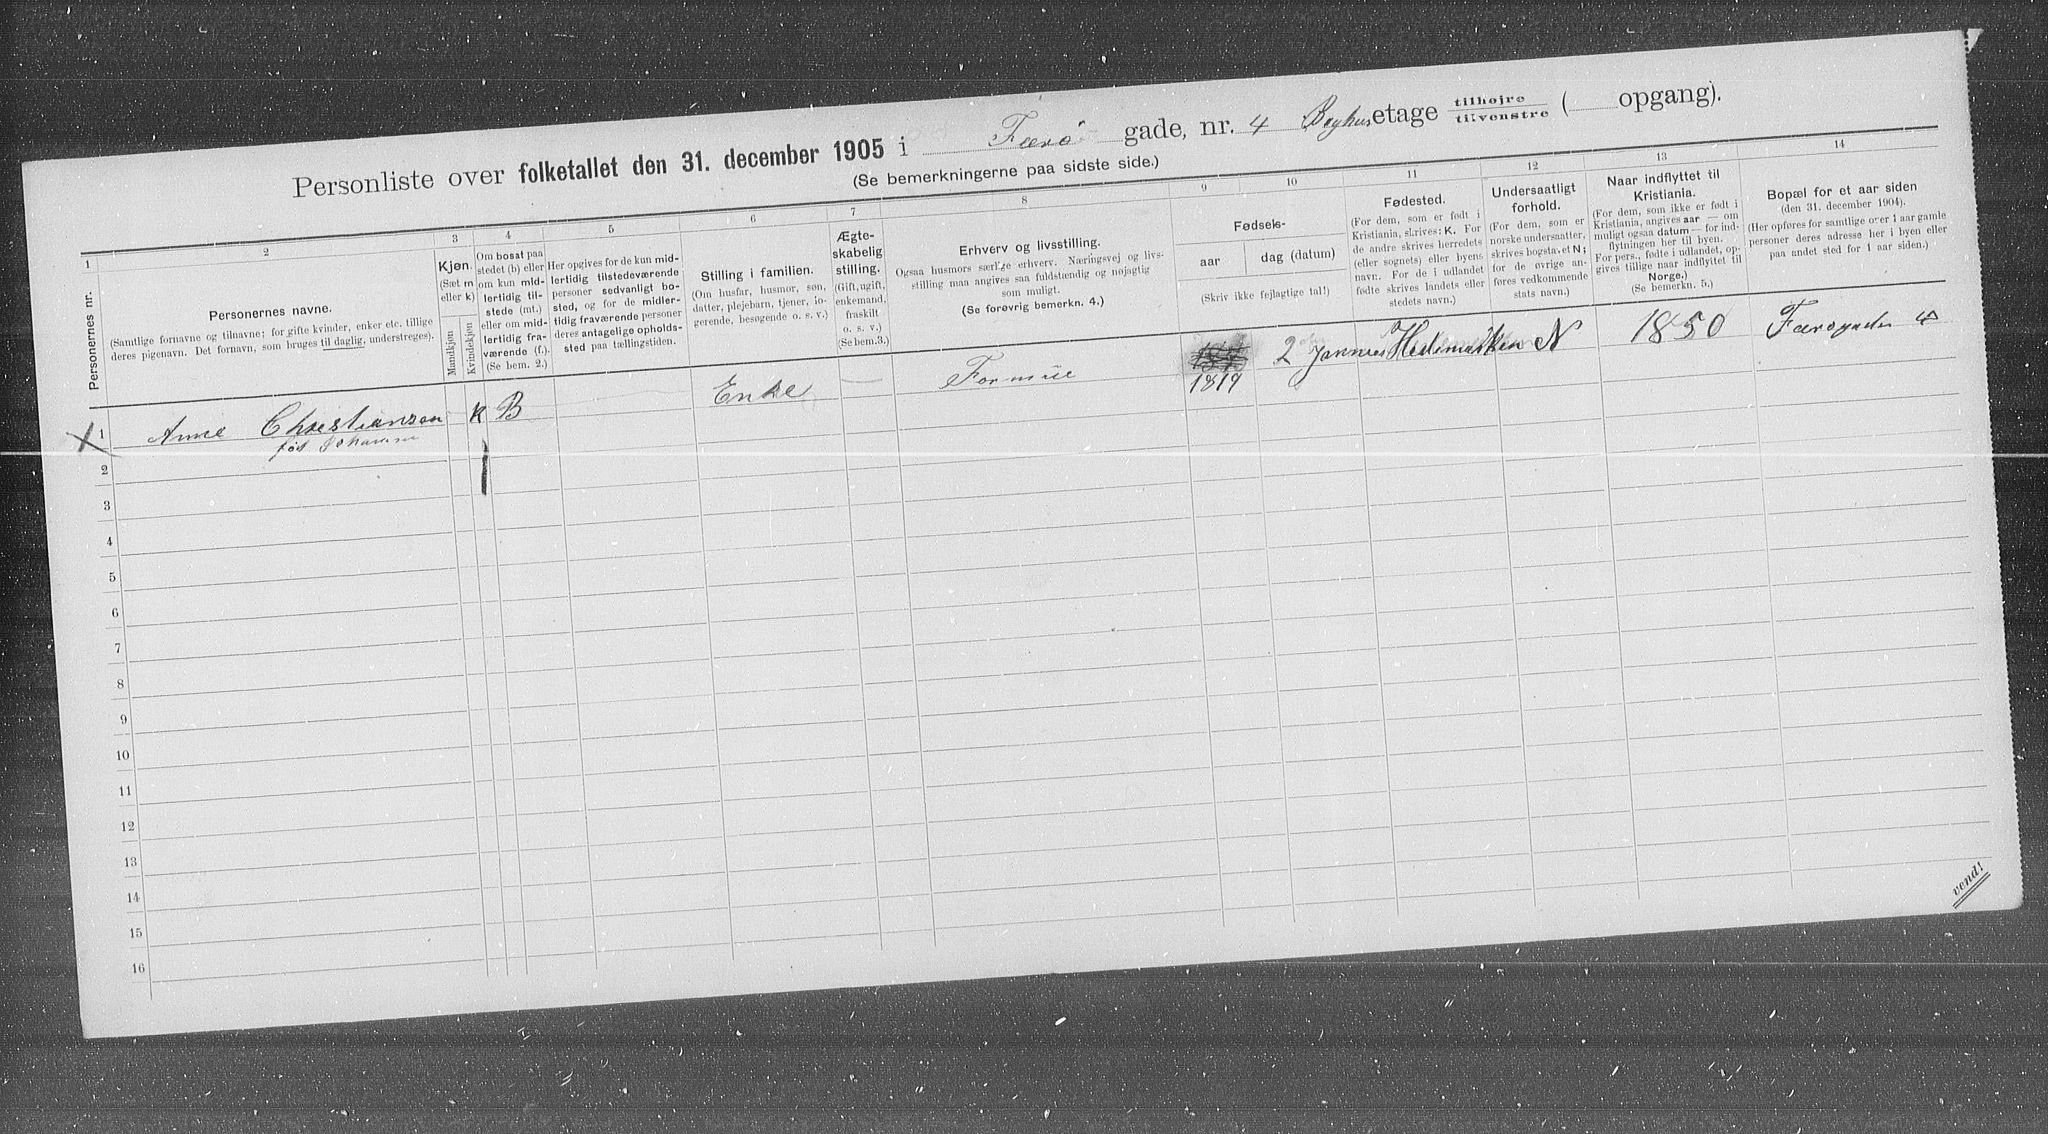 Personliste over folketallet den 31. december 1905 i Færø gade, nr. 4 Baghus etage tilhøjre / tilvenstre ( opgang).
(Se bemerkningerne paa sidste side.)
1 2 3 4 5 6 7 8 9 10 11 12 13 14
Personernes nr.
Personernes navne.
(Samtlige fornavne og tilnavne; for gifte kvinder, enker etc. tillige
deres pigenavn. Det fornavn, som bruges til daglig, understreges).
Kjøn.
(Sæt m
eller k)
Mandkjøn
Kvindekjøn
Om bosat paa
stedet (b) eller
om kun mid-
lertidig til-
stede (mt.)
eller om mid-
lertidig fra-
værende (f.).
(Se bem. 2.)
Her opgives for de kun mid-
lertidig tilstedeværende
personer sedvanligt bo-
sted, og for de midler-
tidig fraværende personer
deres antagelige opholds-
sted paa tællingstiden.
Stilling i familien.
(Om husfar, husmor, søn,
datter, plejebarn, tjener, lo-
gerende, besøgende o. s. v.)
Ægte-
skabelig
stilling.
(Gift, ugift,
enkemand,
fraskilt
o. s. v.)
(Se bem. 3.)
Erhverv og livsstilling.
Ogsaa husmors særlige erhverv. Næringsvej og livs-
stilling maa angives saa fuldstændig og nøjagtig
som muligt.
(Se forøvrig bemerkn. 4.)
Fødsels-
aar
dag (datum)
(Skriv ikke fejlagtige tal!)
Fødested.
(For dem, som er født i
Kristiania, skrives: K. For
de andre skrives herredets
(eller sognets) eller byens
navn. For de i udlandet
fødte skrives landets eller
stedets navn.)
Undersaatligt
forhold.
(For dem, som er
norske undersaatter,
skrives bogstavet N;
for de øvrige an-
føres vedkommende
stats navn.)
Naar indflyttet til
Kristiania.
(For dem, som ikke er født i
Kristiania, angives aar — om
muligt ogsaa datum — for ind-
flytningen her til byen.
For pers., fødte i udlandet, op-
gives tillige naar indflyttet til
Norge.)
(Se bemerkn. 5.)
Bopæl for et aar siden
(den 31. december 1904).
(Her opføres for samtlige over 1 aar gamle
personer deres adresse her i byen eller
paa andet sted for 1 aar siden.)
X 1 Anne Christiansen k B Enke — Formue 1819 2 Hedemarken N 1850 Færøgaden 4
fød Johannsen
2
3
4
5
6
7
8
9
10
11
12
13
14
15
16
vend!